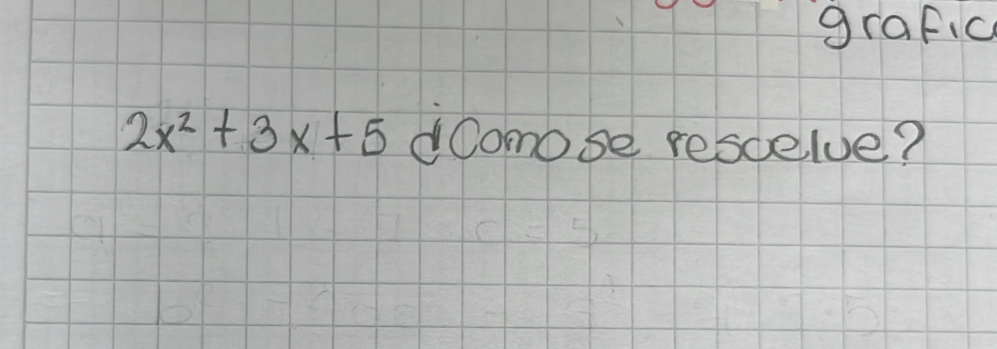 grafic
2x² + 3x + 5 ¿Como se rescelve?